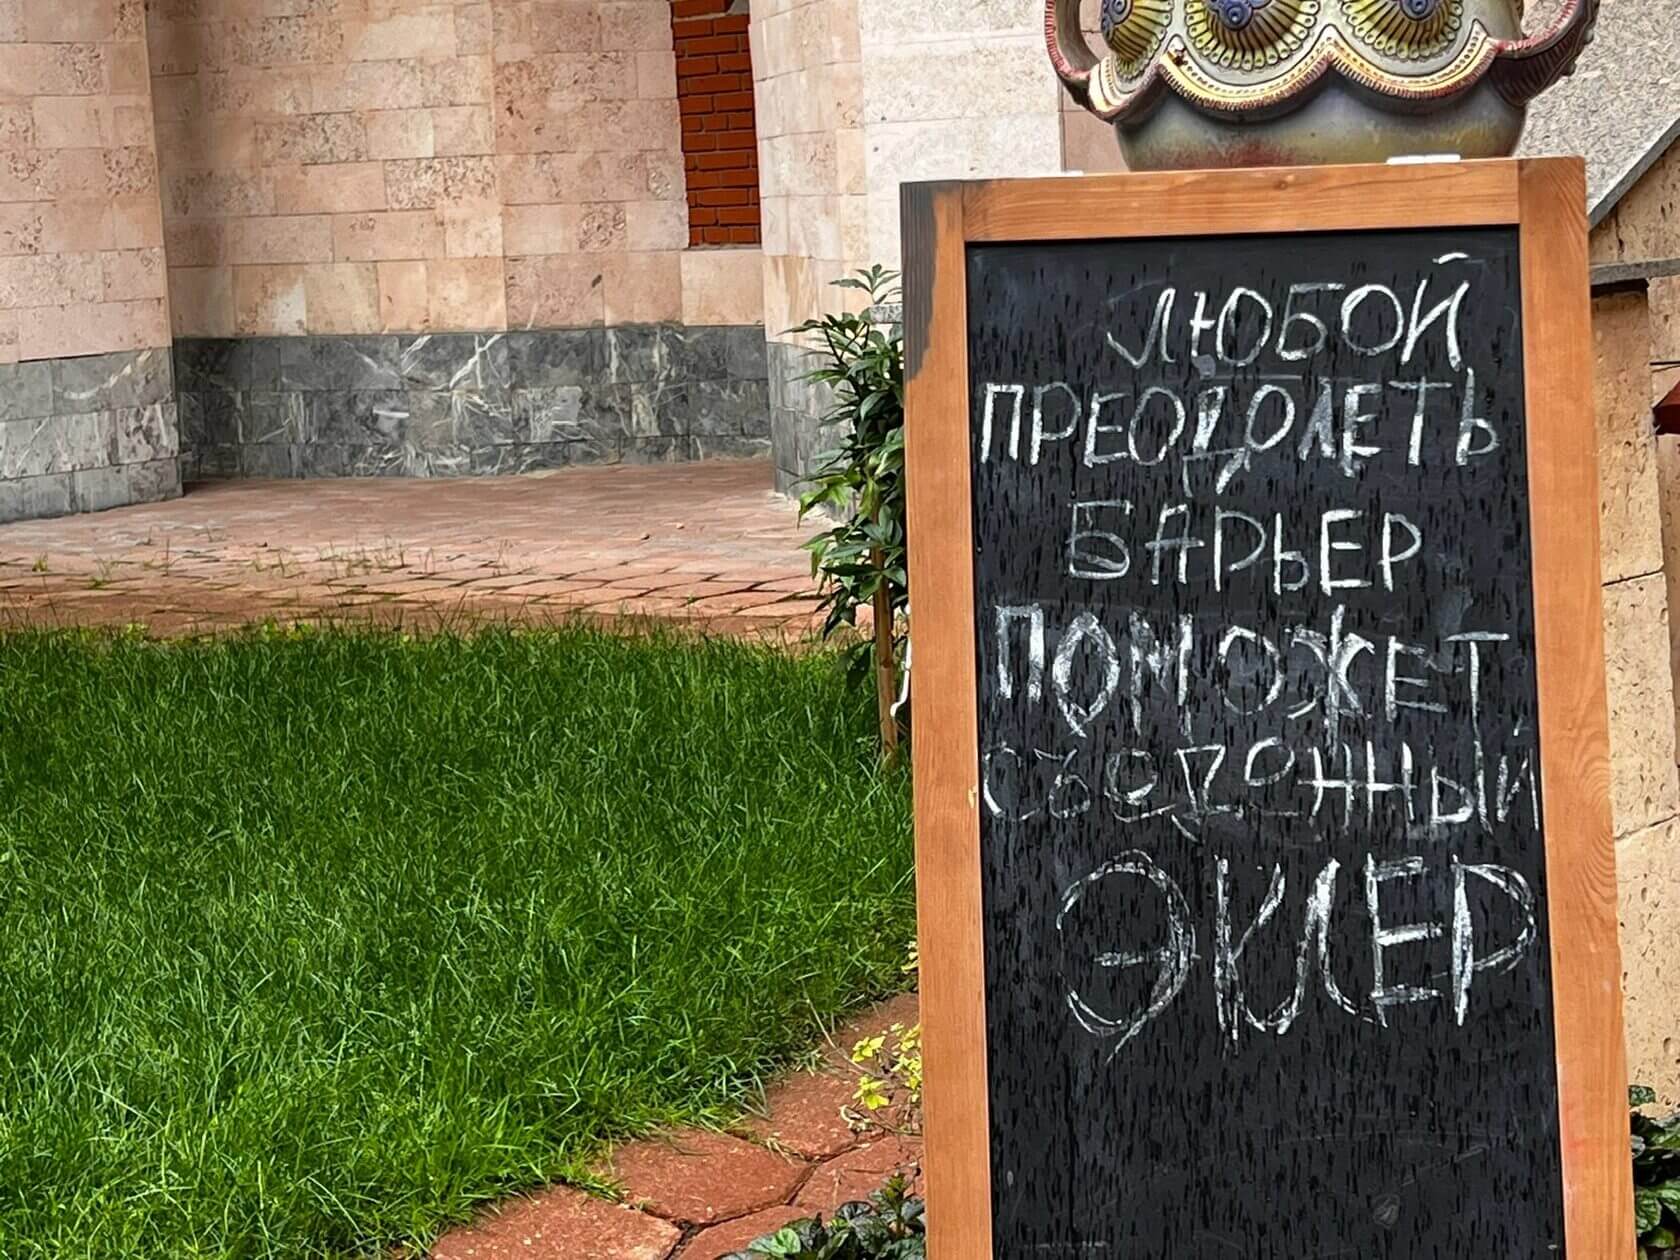 ЛЮБОЙ
ПРЕОДОЛЕТЬ
БАРЬЕР
ПОМОЖЕТ
СЪЕДОННЫЙ
ЭКЛЕР